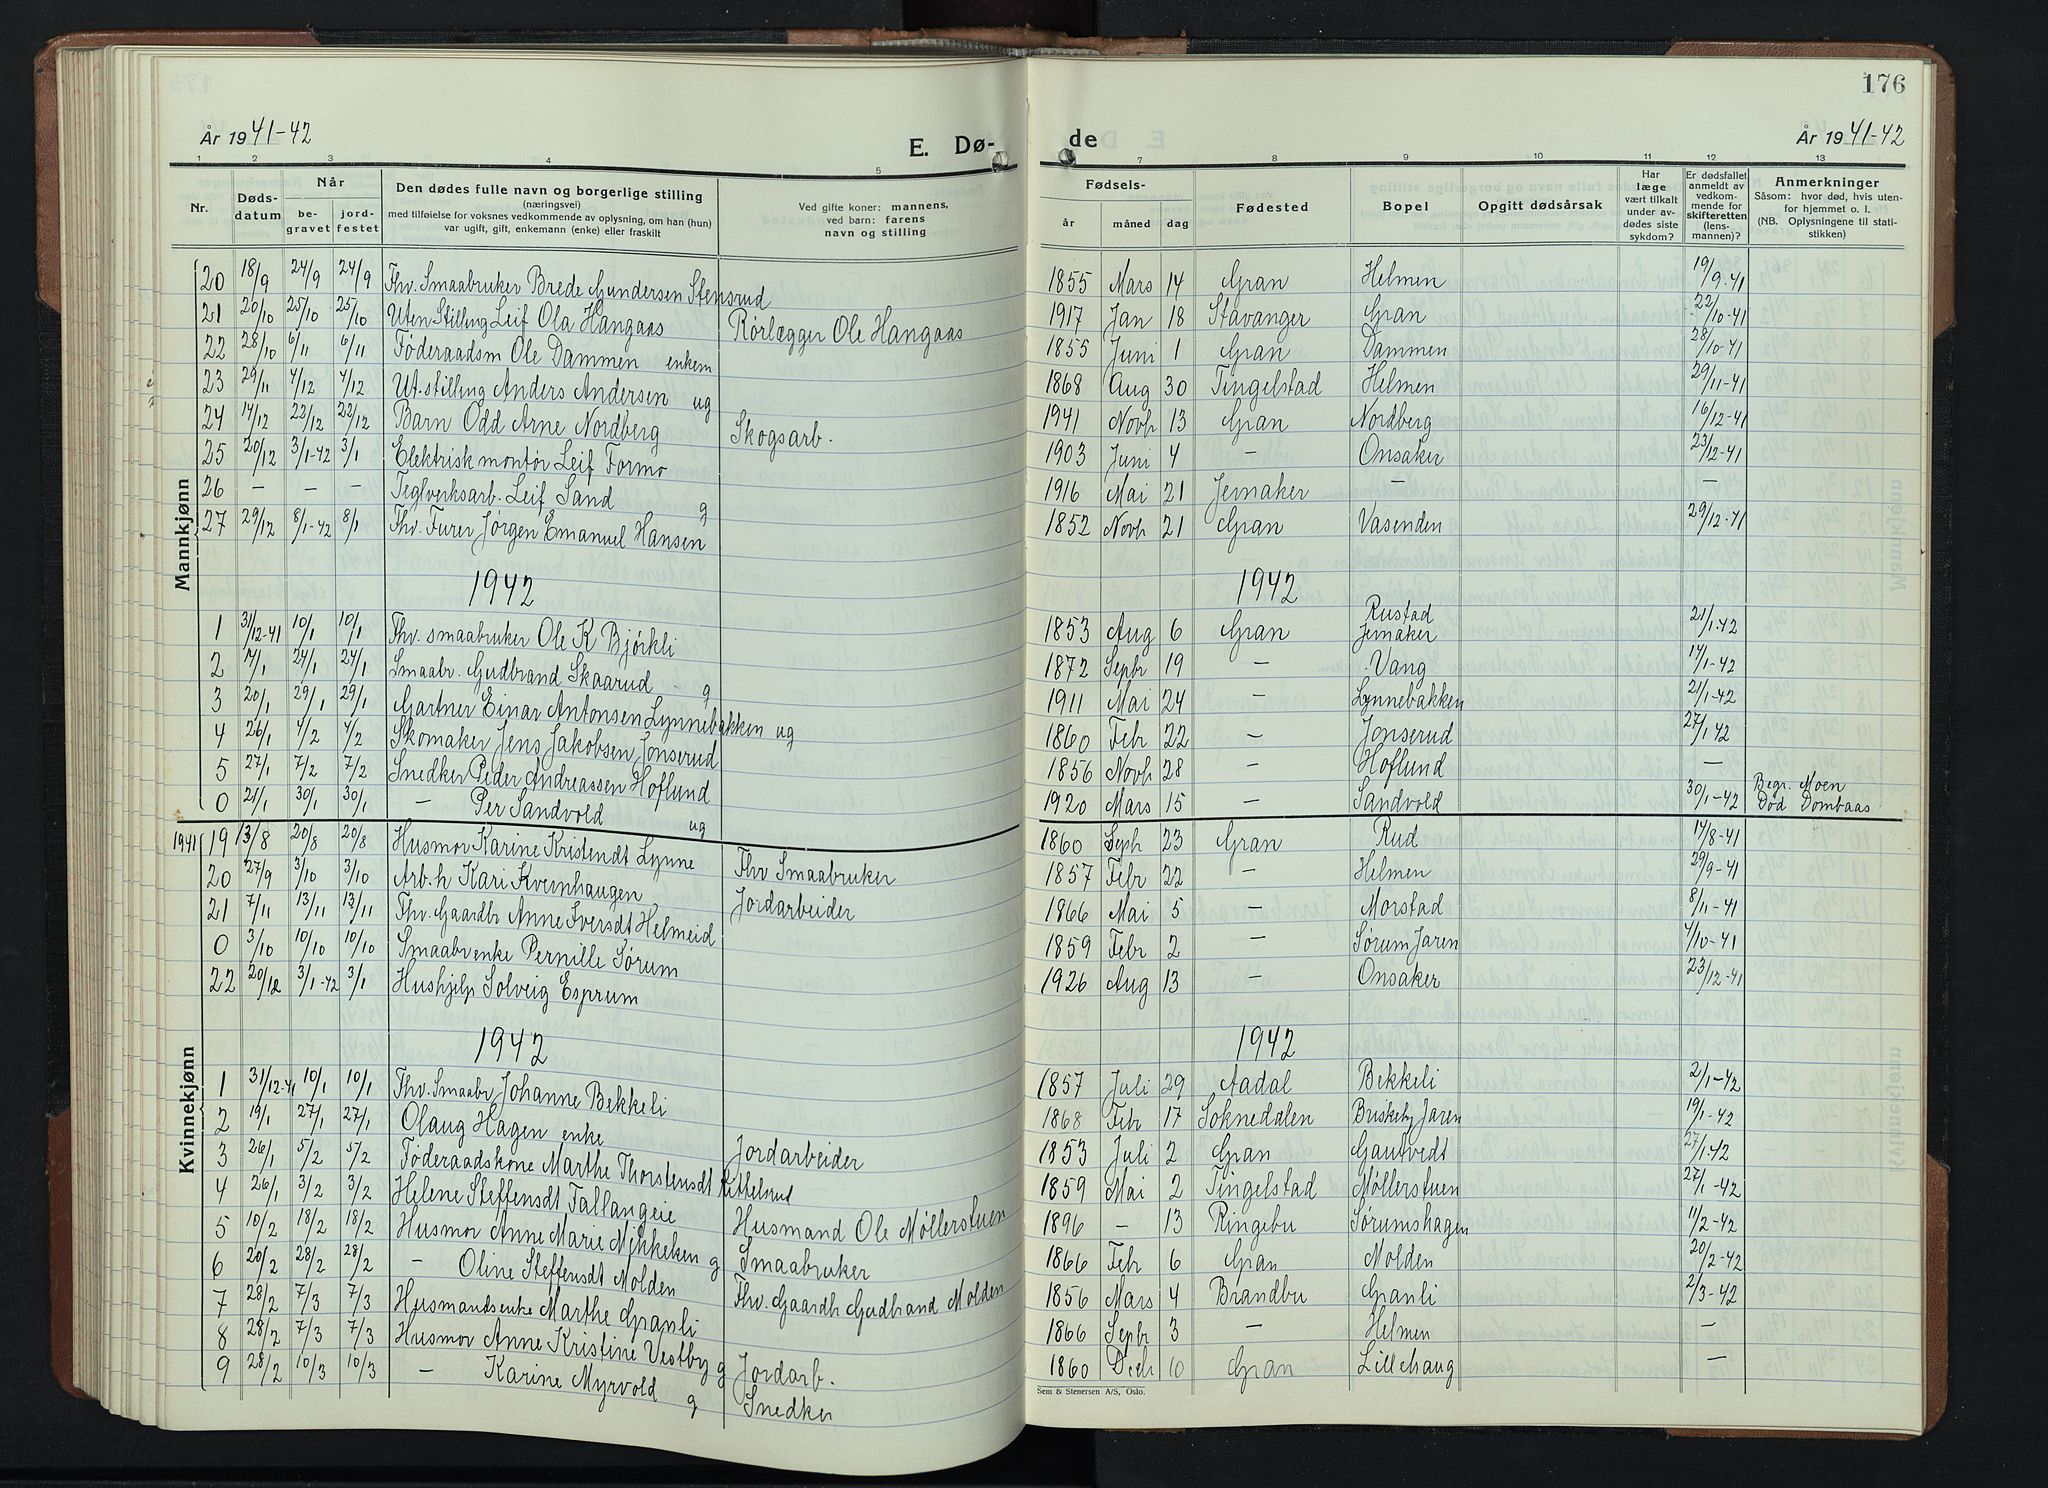 176
År 1941-42
E. Dø-
de
År 1941-42
1 2 3 4 5
7 8 9 10 11 12 13
Nr.
Døds-
datum
Når
be-
gravet
jord-
festet
Den dødes fulle navn og borgerlige stilling
(næringsvei)
med tilføielse for voksnes vedkommende av oplysning, om han (hun)
var ugift, gift, enkemann (enke) eller fraskilt
Ved gifte koner: mannens,
ved barn: farens
navn og stilling
Fødsels-
år måned dag
Fødested
Bopel
Opgitt dødsårsak
Har
læge
vært tilkalt
under av-
dødes siste
sykdom?
Er dødsfallet
anmeldt av
vedkom-
mende for
skifteretten
(lens-
mannen)?
Anmerkninger
Såsom: hvor død, hvis uten-
for hjemmet o. l.
(NB. Oplysningene til stati-
stikken)
Mannkjønn
20 18/9 24/9 24/9 Fhv. Smaabruker Brede Gundersen Stensrud 1855 Mars 14 Gran Helmen 19/9-41
21 20/10 25/10 25/10 Uten Stilling Leif Ola Hangaas Rörlægger Ole Hangaas 1917 Jan 18 Stavanger Gran 22/10-41
22 28/10 6/11 6/11 Føderaadsm Ole Dammen enkem 1855 Juni 1 Gran Dammen 28/10-41
23 29/11 4/12 4/12 Ut.stilling Anders Andersen ug 1868 Aug 30 Tingelstad Helmen 29/11-41
24 14/12 22/12 22/12 Barn Odd Arne Nordberg Skogsarb. 1941 Novb 13 Gran Nordberg 16/12-41
25 20/12 3/1-42 3/1 Elektrisk montör Leif Formo 1903 Juni 4 – Onsaker 23/12-41
26 – – – Teglverksarb. Leif Sand g 1916 Mai 21 Jernaker – –
27 29/12 8/1-42 8/1 Fhv. Furer Jørgen Emanuel Hansen 1852 Novb 21 Gran Vasenden 29/12-41
1942
1942
1 31/12-41 10/1 10/1 Fhv. smaabruker Ole K Bjørkli 1853 Aug 6 Gran Rustad Jernaker 21/1-42
2 14/1 24/1 24/1 Smaabr. Gudbrand Skaarud g 1872 Sepbr 19 – Vang 17/1-42
3 20/1 29/1 29/1 Gartner Einar Antonsen Lynnebakken ug 1911 Mai 24 – Lynnebakken 21/1-42
4 26/1 4/2 4/2 Skomaker Jens Jakobsen Jonserud 1860 Febr 22 – Jonserud 27/1-42
5 27/1 7/2 7/2 Snedker Peder Andreassen Hoflund 1856 Novb 28 – Hoflund –
0 21/1 30/1 30/1 – Per Sandvold ug 1920 Mars 15 – Sandvold 30/1-42 Begr. Moen Død Dombaas
Kvinnekjønn
1941 19 13/8 20/8 20/8 Husmor Karine Kristendt Lynne Fhv Smaabruker 1860 Septb 23 Gran Rud 14/8-41
20 27/9 3/10 3/10 Arb.k Kari Kvernhaugen Jordarbeider 1857 Febr 22 – Helmen 29/9-41
21 7/11 13/11 13/11 Fhv. Gaardbr Anne Iversdt Helmeid 1866 Mai 5 – Morstad 8/11-41
0 3/10 10/10 10/10 Smaabr enke Pernille Sørum 1859 Febr 2 – Sørum Jaren 4/10-41
22 20/12 3/1-42 3/1 Hushjelp Solveig Esprum 1926 Aug 13 – Onsaker 23/12-41
1942
1942
1 31/12-41 10/1 10/1 Fhv. Smaabr Johanne Bekkeli 1857 Juli 29 Aadal Bekkeli 2/1-42
2 19/1 27/1 27/1 Olaug Hagen enke 1868 Febr 17 Sokneddalen Buskeby Jaren 19/1-42
3 26/1 5/2 5/2 Føderaadskone Marthe Thorstensdt Kittelsrud Jordarbeider 1853 Juli 2 Gran Gamtvedt 27/1-42
4 26/1 3/2 3/2 Helene Steffensdt Fallangeie 1859 Mai 2 Tingelstad Møllerstuen 27/1-42
5 10/2 18/2 18/2 Husmor Anne Marie Mykkelien g Husmand Ole Møllerstuen 1896 – 13 Ringebu Sørumshagen 11/2-42
6 20/2 28/2 28/2 – Oline Steffensdt Molden Smaabruker 1866 Febr 6 Gran Molden 20/2-42
7 28/2 7/3 7/3 Husmandsenke Marthe Granli Fhv. Gaardb Gudbrand Molden 1856 Mars 4 Brandbu Granli 2/3-42
8 28/2 7/3 7/3 Husmor Anne Kristine Vestby g Jordarb. 1866 Sepbr 3 – Helmen –
9 28/2 10/3 10/3 – Karine Myrvold g Snedker 1860 Decb 10 Gran Lillehaug –
Sem & Stenersen A/S, Oslo.